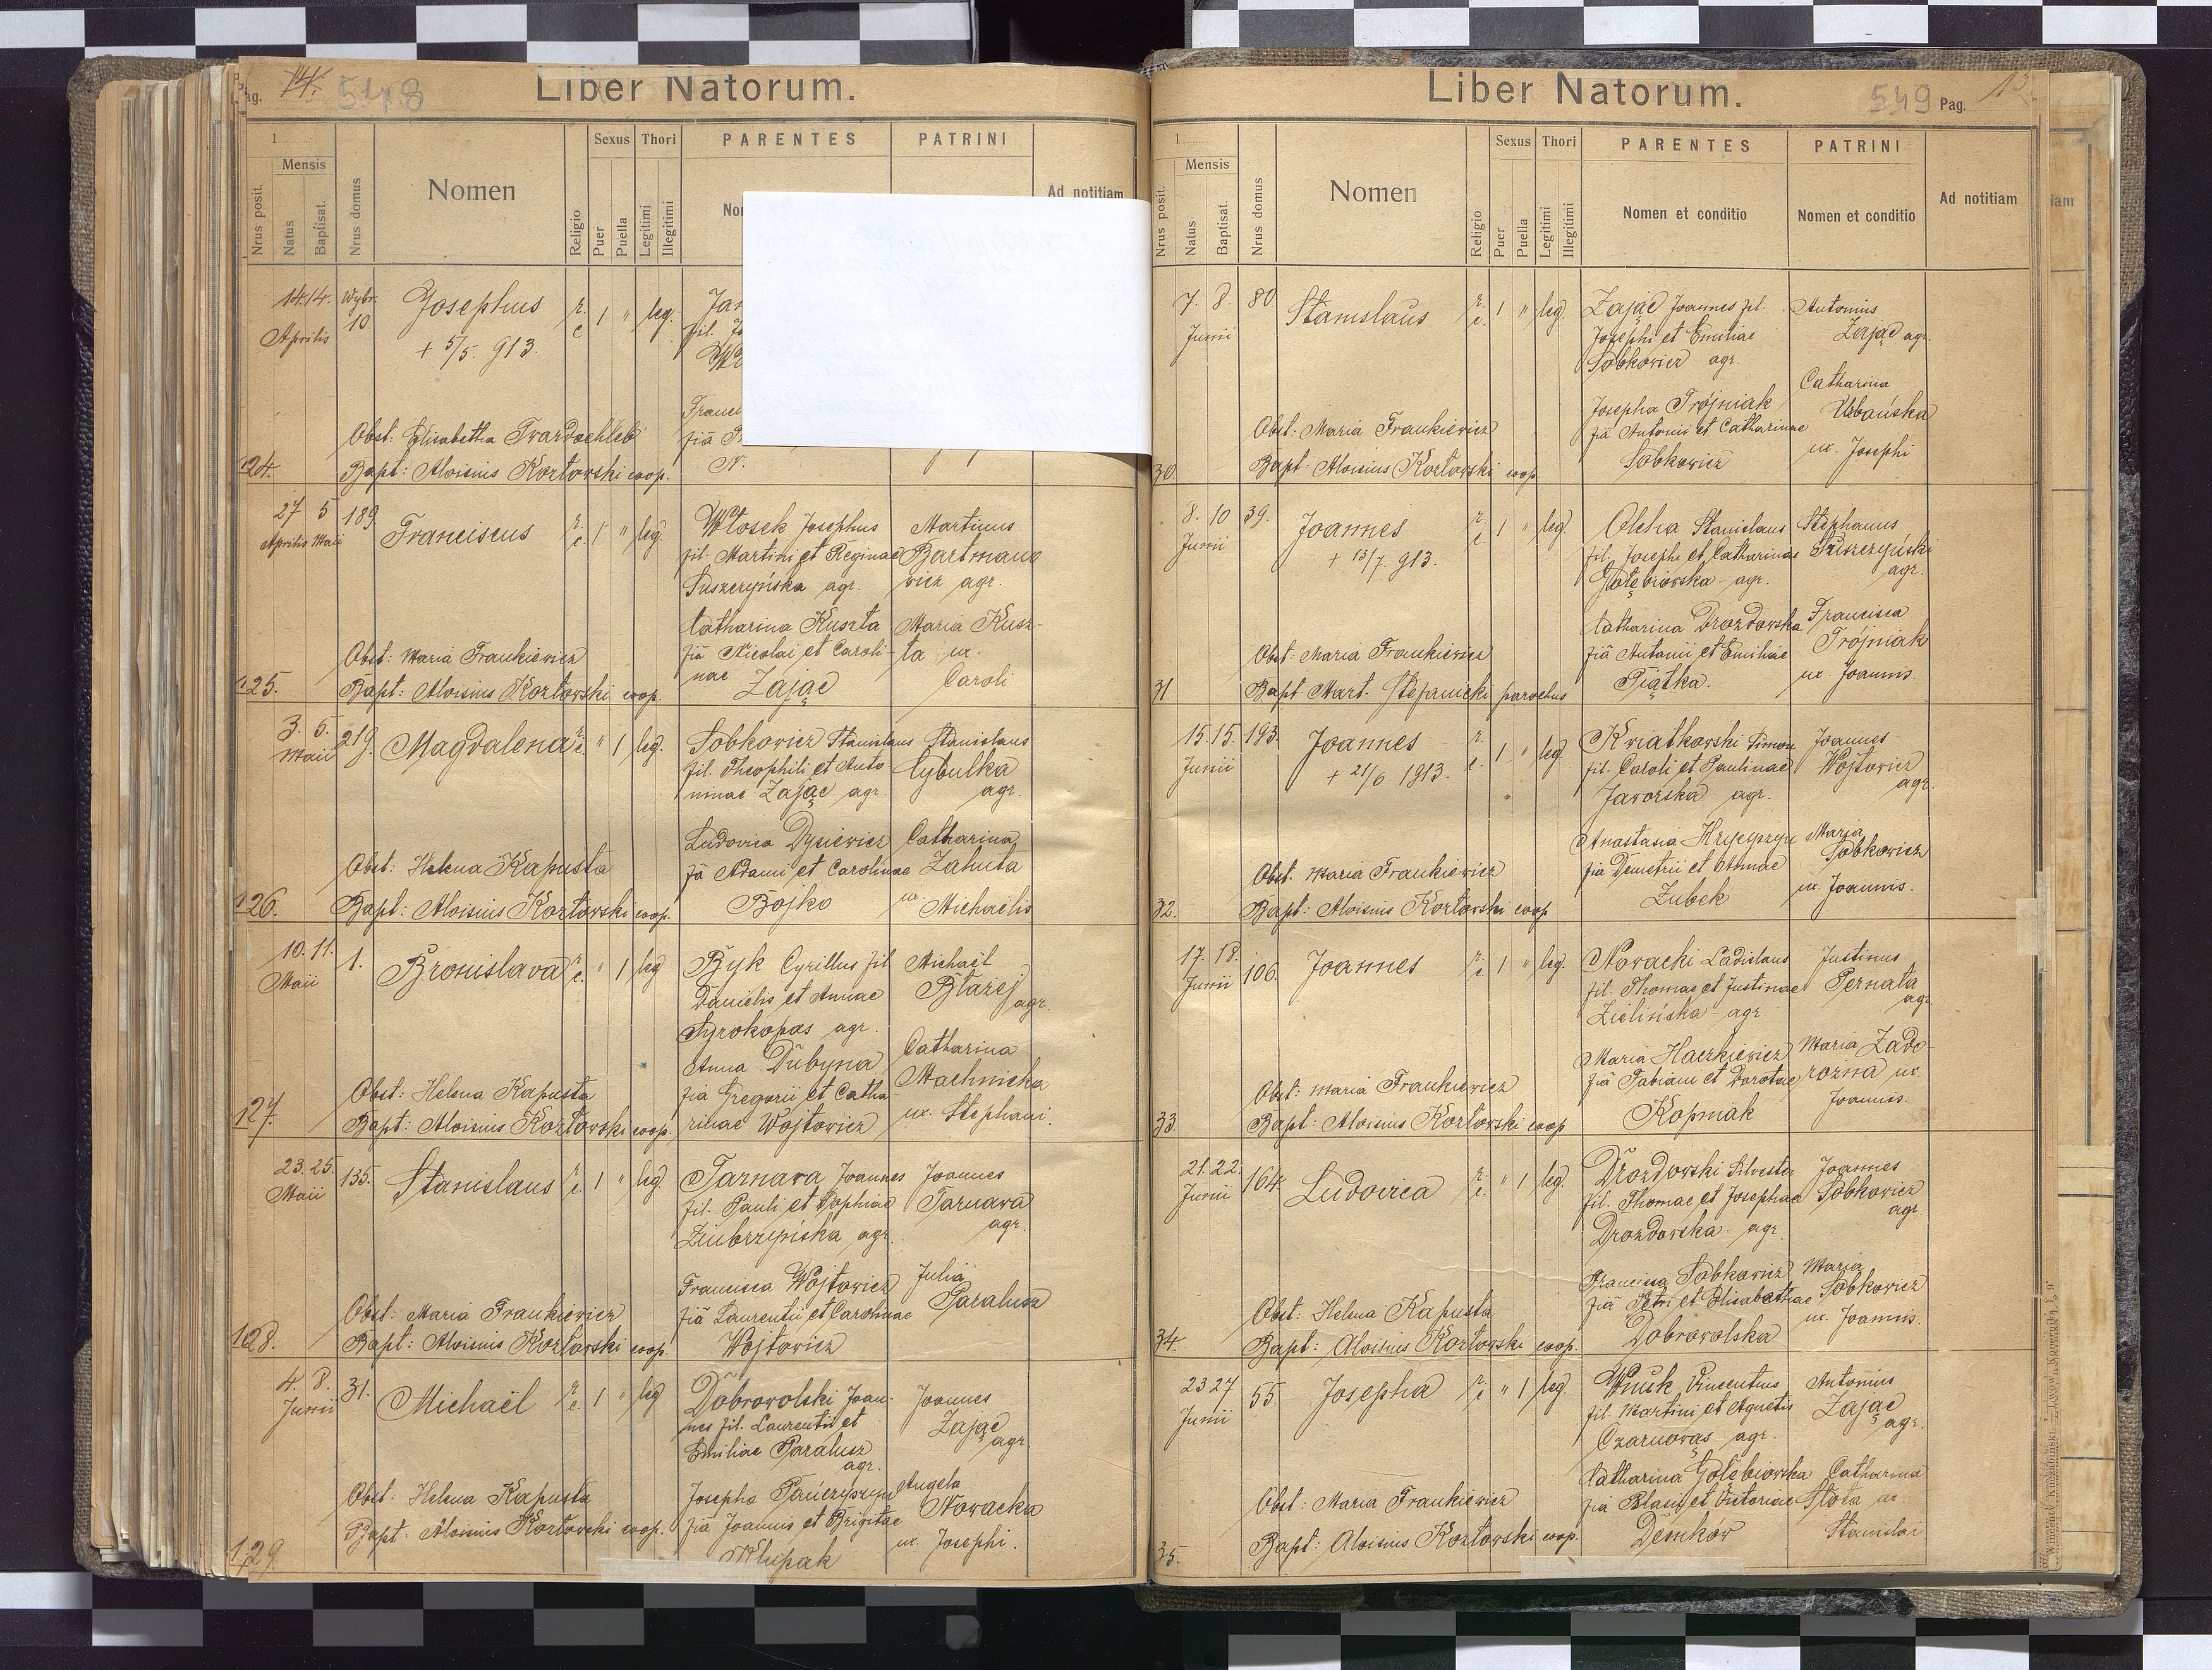 Pag. 14. 548
Liber Natorum.
1
Mensis
Nrus posit.
Natus
Baptisat.
Nrus domus
Nomen
Religio
Sexus
Puer
Puella
Thori
Legitimi
Illegitimi
PARENTES
PATRINI
Ad notitiam
14. 14. Wybr. 10. Josephus r. c. 1 " leg.
Aprilis
+ 5/5. 913.
Obst: Elisabetha Twardochleb
124. Bapt: Aloisius Kozłowski coop. N.
27 5 189. Franciscus r. c. 1 " leg. Włosek Josephus Martinus
Aprilis Maii
fil. Martini et Reginae Bartmano
Suszczyńska agr. wicz agr.
Catharina Kuszta Maria Kusz-
Obst: Maria Frankiewicz fiā Nicolai et Caroli- ta ux.
nae Zając Caroli
125. Bapt: Aloisius Kozłowski coop.
3. 5. 219. Magdalena r. c. " 1 leg. Sobkowicz Stanislaus Stanislaus
Maii
fil. Theophili et Anto- Cybulka
ninae Zając agr. agr.
Ludovica Dysiewicz Catharina
Obst: Helena Kapusta fiā Adami et Carolinae Załuta
126. Bapt: Aloisius Kozłowski coop. Bojko ux. Michaëlis
10. 11. 1. Bronislava r. c. " 1 leg Byk Cyrillus fil. Michaël
Maii
Danielis et Annae Błażej agr.
Syrokopas agr.
Anna Dubyna Catharina
Machnicka
Obst: Helena Kapusta fiā Gregorii et Catha-
127. Bapt: Aloisius Kozłowski coop. rinae Wojtowicz ux. Stephani.
23. 25. 135. Stanislaus r. c. 1 " leg. Tarnawa Joannes Joannes
Maii
fil. Pauli et Sophiae Tarnawa
Ziubrzyńska agr. agr.
Francisca Wojtowicz Julia
Obst: Maria Frankiewicz fiā Laurentii et Carolinae Paralusz
128. Bapt: Aloisius Kozłowski coop. Wojtowicz
4. 8. 31. Michaël r. c. 1 " leg Dobrowolski Joan- Joannes
Junii
nes fil. Laurentii et Zając
Emiliae Paralusz agr.
agr.
Josepha Angela
Obst: Helena Kapusta fiā Joannis et Brigitae Nowacka
Bapt: Aloisius Kozłowski coop. ux. Josephi.
129. Klupak
Liber Natorum.
549 Pag. 15.
1
Mensis
Nrus posit.
Natus
Baptisat.
Nrus domus
Nomen
Religio
Sexus
Puer
Puella
Thori
Legitimi
Illegitimi
PARENTES
Nomen et conditio
PATRINI
Nomen et conditio
Ad notitiam
7. 8. 80. Stanislaus r. c. 1 " leg. Zając Joannes fil. Antonius
Junii
Josephi et Emiliae Zając agr.
Sobkowicz agr.
Catharina
Josepha Trójniak Urbańska
Obst: Maria Frankiewicz fiā Antonii et Catharinae
ux. Josephi
30. Bapt: Aloisius Kozłowski coop. Sobkowicz
8. 10 39. Joannes r. c. 1 " leg. Olcha Stanislaus Stephanus
Junii
+ 13/7. 913. fil. Josephi et Catharinae Suszczyński
Gołębiowska agr. agr.
Catharina Drozdowska Francisca
Obst: Maria Frankiewicz fiā Antonii et Emiliae Trójniak
31. Bapt. Mart. Stefanicki parochus Piątka. ux. Joannis.
15. 15. 193. Joannes r. c. 1 " leg. Kwiatkowski Simon Joannes
Junii
+ 21/6. 1913. fil. Caroli et Paulinae Wojtowicz
Jaworska agr. agr.
Anastasia Maria
Obst. Maria Frankiewicz fiā Demetrii et Annae Sobkowicz
32. Bapt: Aloisius Kozłowski coop Zubek ux. Joannis.
17. 18. 106. Joannes r. c. 1 " leg. Nowacki Ladislaus Justinus
Junii
fil. Thomae et Justinae Pernata
Zielińska agr. agr.
Maria Haczkiewicz Maria Zado-
Obst: Maria Frankiewicz fiā Fabiani et Dorotae rozna ux.
33. Bapt: Aloisius Kozłowski coop Kopniak Joannis.
21. 22. 164. Ludovica r. c. " 1 leg. Drozdowski Silvester Joannes
Junii
fil. Thomae et Josephae Sobkowicz
Drozdowska agr. agr.
Francisca Sobkowicz Maria
Obst: Helena Kapusta fiā Petri et Elisabethae Sobkowicz
34. Bapt: Aloisius Kozłowski coop. Dobrowolska ux. Joannis.
23 27. 55. Josepha r. c. " 1 leg. Wnuk Vincentius Antonius
Junii
fil. Martini et Agnetis Zając
Czarnowąs agr. agr.
Catharina Gołębiowska Catharina
Obst: Maria Frankiewicz fiā Blasii et Victoriae Słota ux.
35. Bapt: Aloisius Kozłowski coop. Demków Stanislai